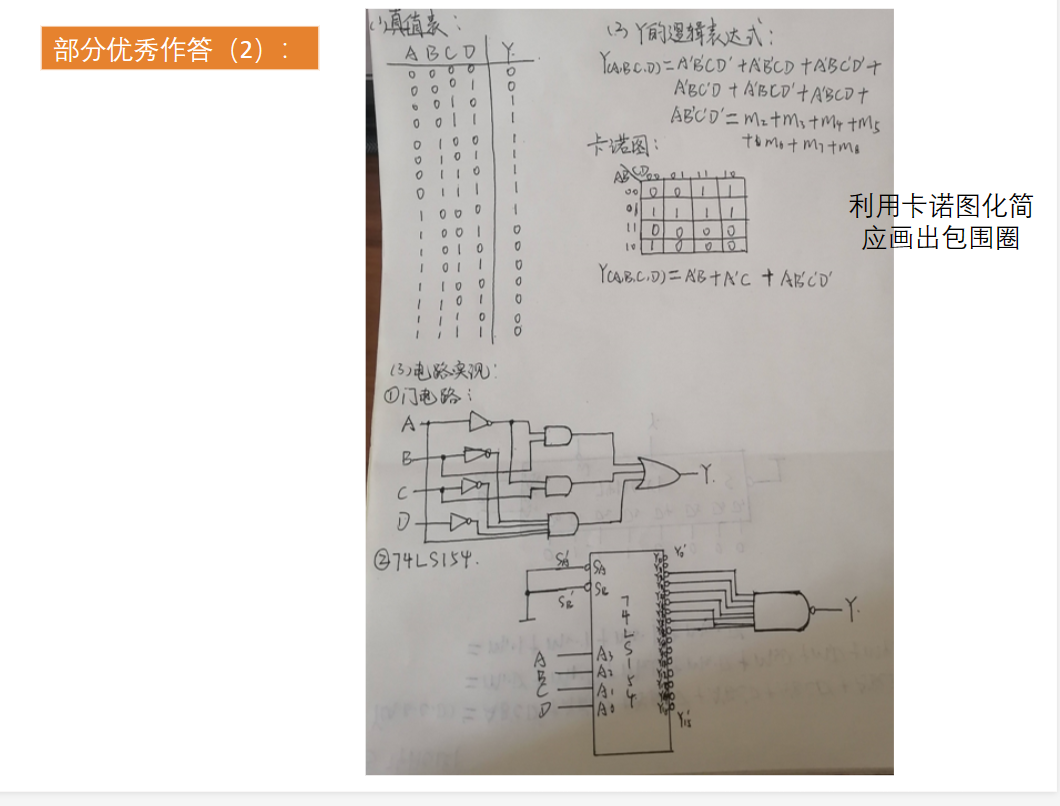 部分优秀作答（2）：
(1)真值表：
A B C D Y
0 0 0 0 0
0 0 0 1 0
0 0 1 0 1
0 0 1 1 1
0 1 0 0 1
0 1 0 1 1
0 1 1 0 1
0 1 1 1 1
1 0 0 0 1
1 0 0 1 0
1 0 1 0 0
1 0 1 1 0
1 1 0 0 0
1 1 0 1 0
1 1 1 0 0
1 1 1 1 0
(2) Y的逻辑表达式：
Y(A,B,C,D)=A'B'CD'+A'B'CD+A'BC'D'+
A'BC'D+A'BCD'+A'BCD+
AB'C'D'=m2+m3+m4+m5
+m6+m7+m8
卡诺图：
AB CD 00 01 11 10
00 0 0 1 1
01 1 1 1 1
11 0 0 0 0
10 1 0 0 0
Y(A,B,C,D)=A'B+A'C+AB'C'D'
利用卡诺图化简
应画出包围圈
(3)电路实现：
①门电路：
A
B
C
D
Y.
②74LS154.
SA'
SB'
SA
SB
74LS154
A A3
B A2
C A1
D A0
Y0'
Y15'
Y.